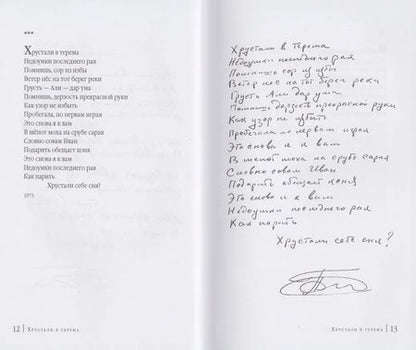 ***
Хрустали в терема
Недоумки последнего рая
Помнишь, сор из избы
Ветер нёс на тот берег реки
Грусть — Али — дар ума
Помнишь, дерзость прекрасной руки
Как узор не избыть
Пробегала, по нервам играя
Это снова я к вам
В шёпот мова на срубе сарая
Словно совам Иван
Подарить обещает коня
Это снова я к вам
Недоумки последнего рая
Как парить
Хрустали себе сня?
1973
12 | Хрустали в терема
Хрустали в терема
Недоумки последнего рая
Помнишь сор из избы
Ветер нёс на тот берег реки
Грусть Али дар ума
Помнишь дерзость прекрасной руки
Как узор не избыть
Пробегала по нервам играя
Это снова я к вам
В шепот моха на срубе сарая
Словно совам Иван
Подарить обещает коня
Это снова я к вам
Недоумки последнего рая
Как парить
Хрустали себе сня?
Хрустали в терема | 13